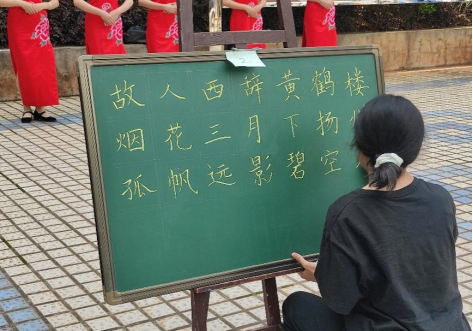 故人西辞黄鹤楼
烟花三月下扬
孤帆远影碧空